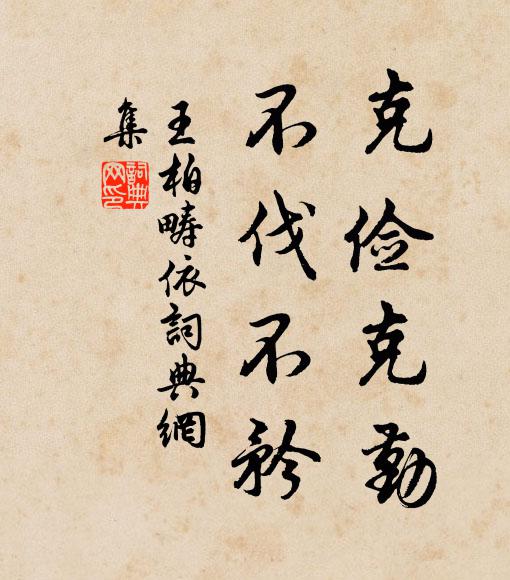 克俭克勤
不伐不矜
王柏疇依詞典網
集
詞典
网印